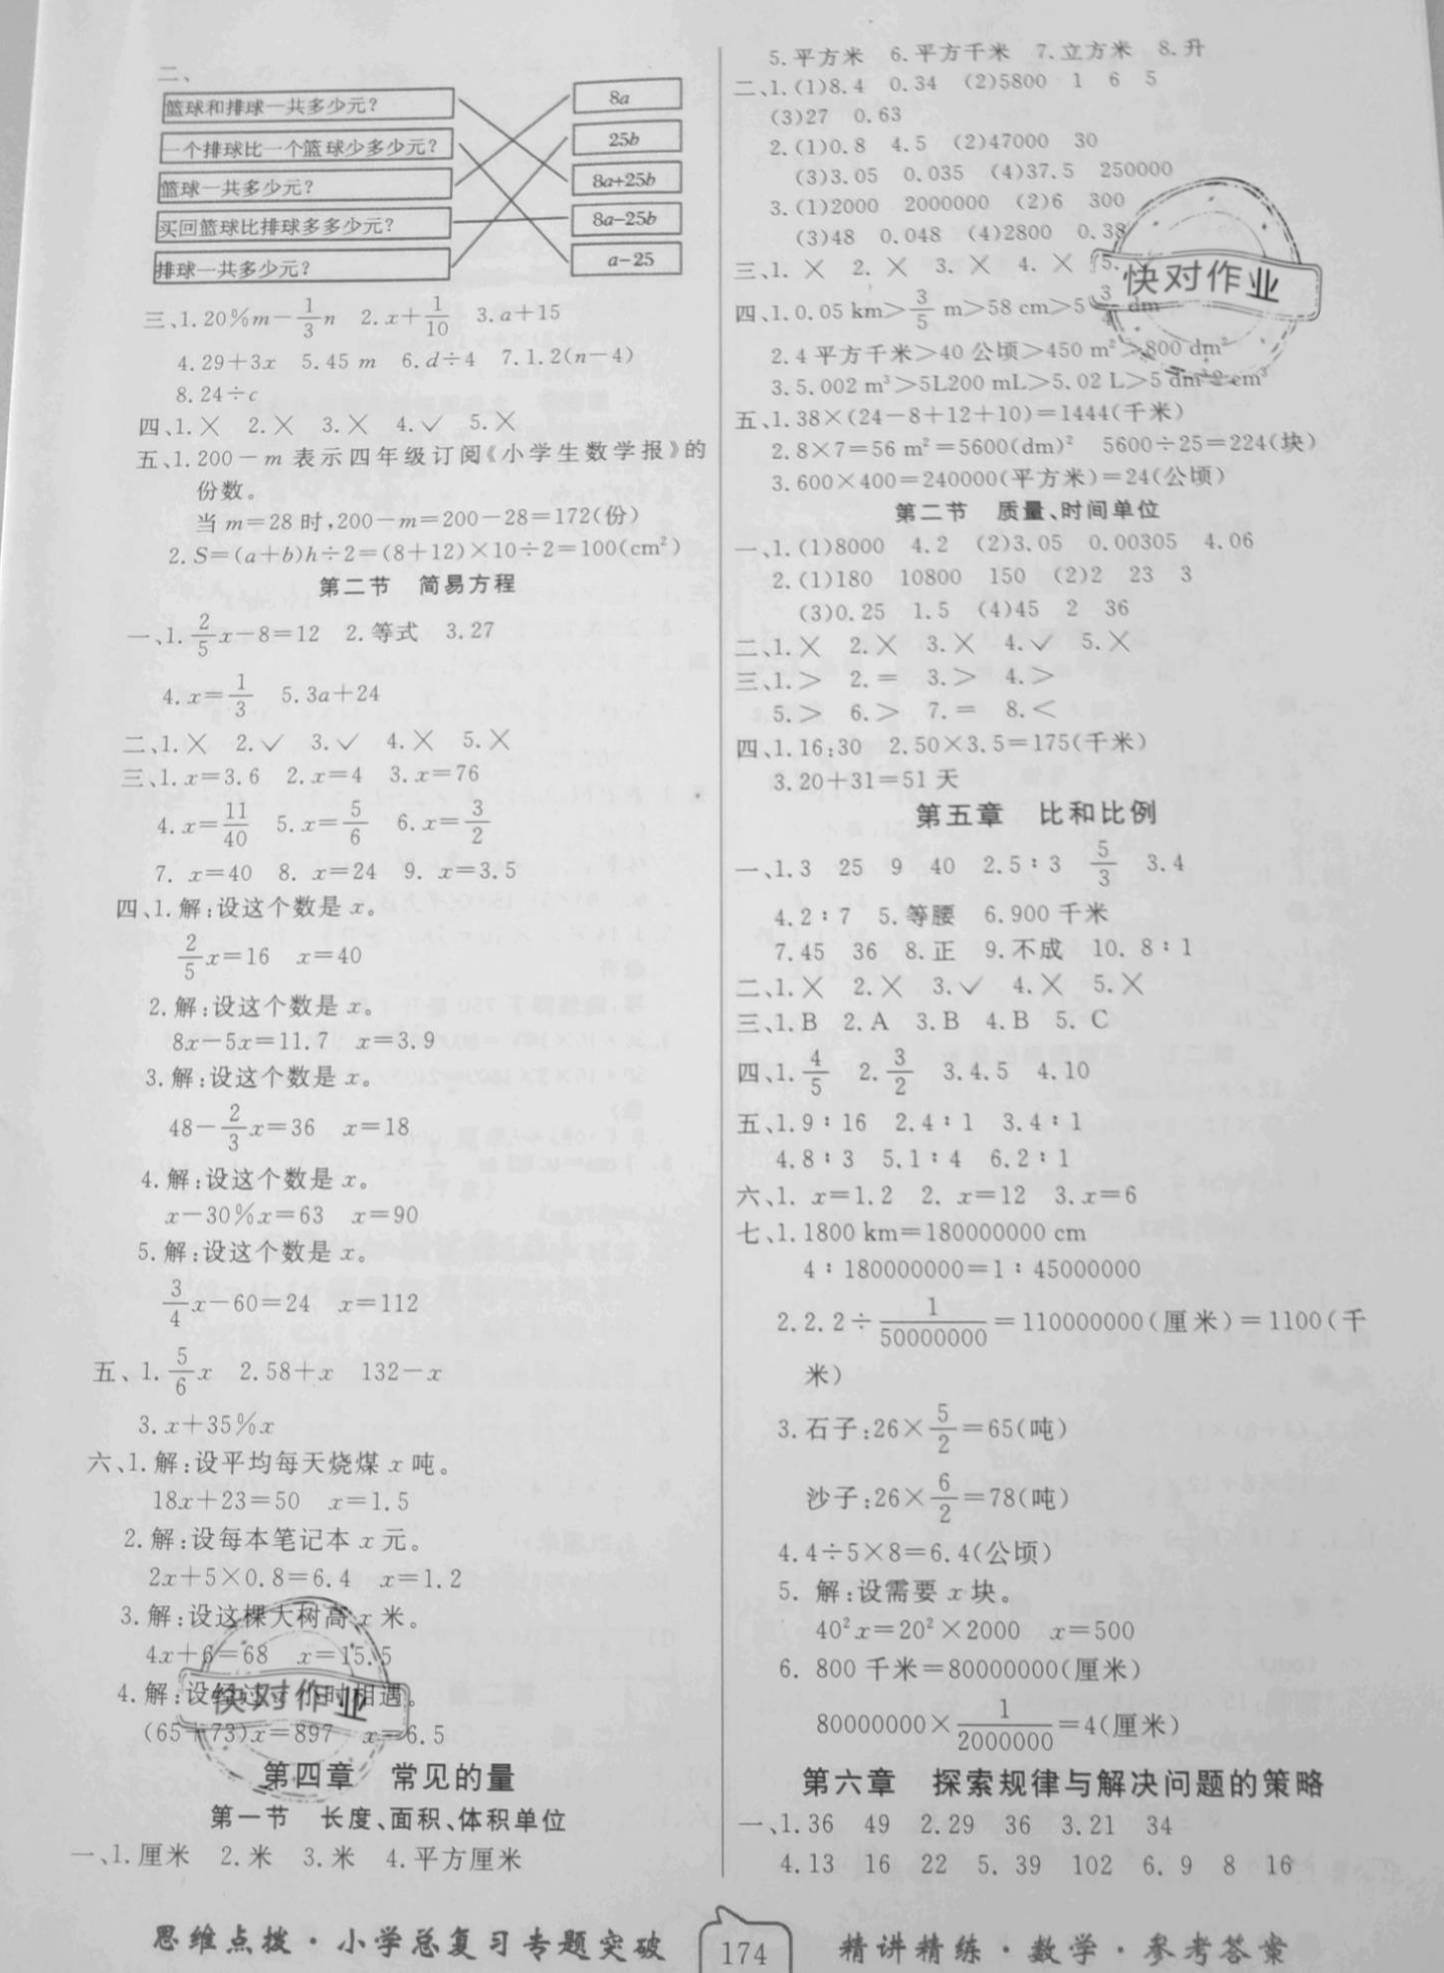 二、
篮球和排球一共多少元？
一个排球比一个篮球少多少元？
篮球一共多少元？
买回篮球比排球多多少元？
排球一共多少元？
8a
25b
8a+25b
8a-25b
a-25
三、1.20%m-1/3n 2.x+1/10 3.a+15
4.29+3x 5.45 m 6.d÷4 7.1.2(n-4)
8.24÷c
四、1.× 2.× 3.× 4.√ 5.×
五、1.200-m 表示四年级订阅《小学生数学报》的
份数。
当 m=28 时,200-m=200-28=172(份)
2.S=(a+b)h÷2=(8+12)×10÷2=100(cm²)
第二节 简易方程
一、1.2/5x-8=12 2.等式 3.27
4.x=1/3 5.3a+24
二、1.× 2.√ 3.√ 4.× 5.×
三、1.x=3.6 2.x=4 3.x=76
4.x=11/40 5.x=5/6 6.x=3/2
7. x=40 8. x=24 9. x=3.5
四、1.解:设这个数是 x。
2/5x=16 x=40
2.解:设这个数是 x。
8x-5x=11.7 x=3.9
3.解:设这个数是 x。
48-2/3x=36 x=18
4.解:设这个数是 x。
x-30%x=63 x=90
5.解:设这个数是 x。
3/4x-60=24 x=112
五、1.5/6x 2.58+x 132-x
3.x+35%x
六、1.解:设平均每天烧煤 x 吨。
18x+23=50 x=1.5
2.解:设每本笔记本 x 元。
2x+5×0.8=6.4 x=1.2
3.解:设这棵大树高 x 米。
4x+6=68 x=15.5
4.解:设经过 x 小时相遇。
(65+73)x=897 x=6.5
快对作业
第四章 常见的量
第一节 长度、面积、体积单位
一、1.厘米 2.米 3.米 4.平方厘米
5.平方米 6.平方千米 7.立方米 8.升
二、1.(1)8.4 0.34 (2)5800 1 6 5
(3)27 0.63
2.(1)0.8 4.5 (2)47000 30
(3)3.05 0.035 (4)37.5 250000
3.(1)2000 2000000 (2)6 300
(3)48 0.048 (4)2800 0.38
三、1.× 2.× 3.× 4.× 5.
快对作业
四、1.0.05 km>3/5 m>58 cm>5 3/4 dm
2.4 平方千米>40 公顷>450 m²>800 dm²
3.5.002 m³>5L200 mL>5.02 L>5 dm³2 cm³
五、1.38×(24-8+12+10)=1444(千米)
2.8×7=56 m²=5600(dm)² 5600÷25=224(块)
3.600×400=240000(平方米)=24(公顷)
第二节 质量、时间单位
一、1.(1)8000 4.2 (2)3.05 0.00305 4.06
2.(1)180 10800 150 (2)2 23 3
(3)0.25 1.5 (4)45 2 36
二、1.× 2.× 3.× 4.√ 5.×
三、1.> 2.= 3.> 4.>
5.> 6.> 7.= 8.<
四、1.16:30 2.50×3.5=175(千米)
3.20+31=51 天
第五章 比和比例
一、1.3 25 9 40 2.5∶3 5/3 3.4
4.2∶7 5.等腰 6.900 千米
7.45 36 8.正 9.不成 10. 8∶1
二、1.× 2.× 3.√ 4.× 5.×
三、1.B 2.A 3.B 4.B 5.C
四、1.4/5 2.3/2 3.4.5 4.10
五、1.9∶16 2.4∶1 3.4∶1
4.8∶3 5.1∶4 6.2∶1
六、1. x=1.2 2. x=12 3.x=6
七、1.1800 km=180000000 cm
4∶180000000=1∶45000000
2.2.2÷1/50000000=110000000(厘米)=1100(千
米)
3.石子:26×5/2=65(吨)
沙子:26×6/2=78(吨)
4.4÷5×8=6.4(公顷)
5. 解:设需要 x 块。
40²x=20²×2000 x=500
6. 800 千米=80000000(厘米)
80000000×1/2000000=4(厘米)
第六章 探索规律与解决问题的策略
一、1.36 49 2.29 36 3.21 34
4.13 16 22 5. 39 102 6. 9 8 16
思维点拨·小学总复习专题突破
174
精讲精练·数学·参考答案